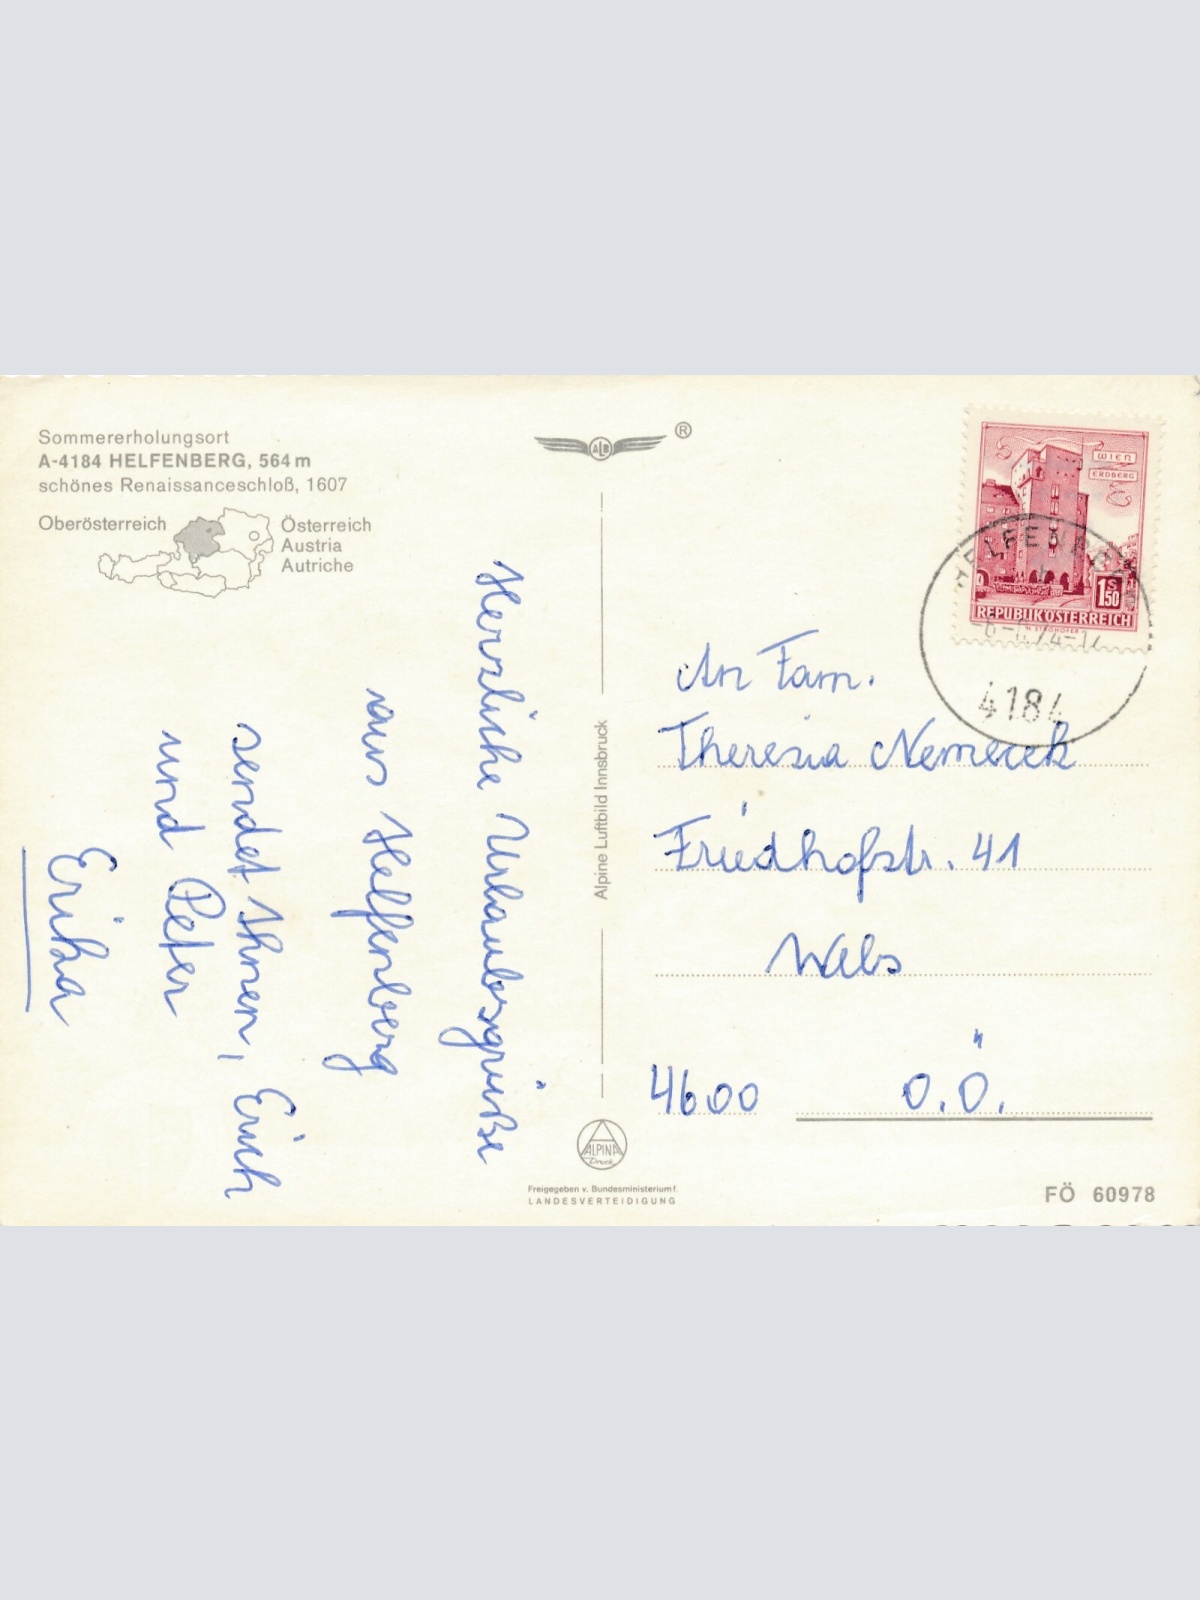 Sommererholungsort
A-4184 HELFENBERG, 564 m
schönes Renaissanceschloß, 1607
Oberösterreich
Österreich
Austria
Autriche
Herzliche Urlaubsgrüße
aus Helfenberg
sendet Ihnen, Erich
und Peter
Erika
ALB
®
Alpine Luftbild Innsbruck
ALPINA
Druck
Freigegeben v. Bundesministerium f.
LANDESVERTEIDIGUNG
WIEN
ERDBERG
1S50
REPUBLIK ÖSTERREICH
HELFENBERG
4184
An Fam.
Theresia Nemecek
Friedhofstr. 41
Wels
4600 O.Ö.
FÖ 60978